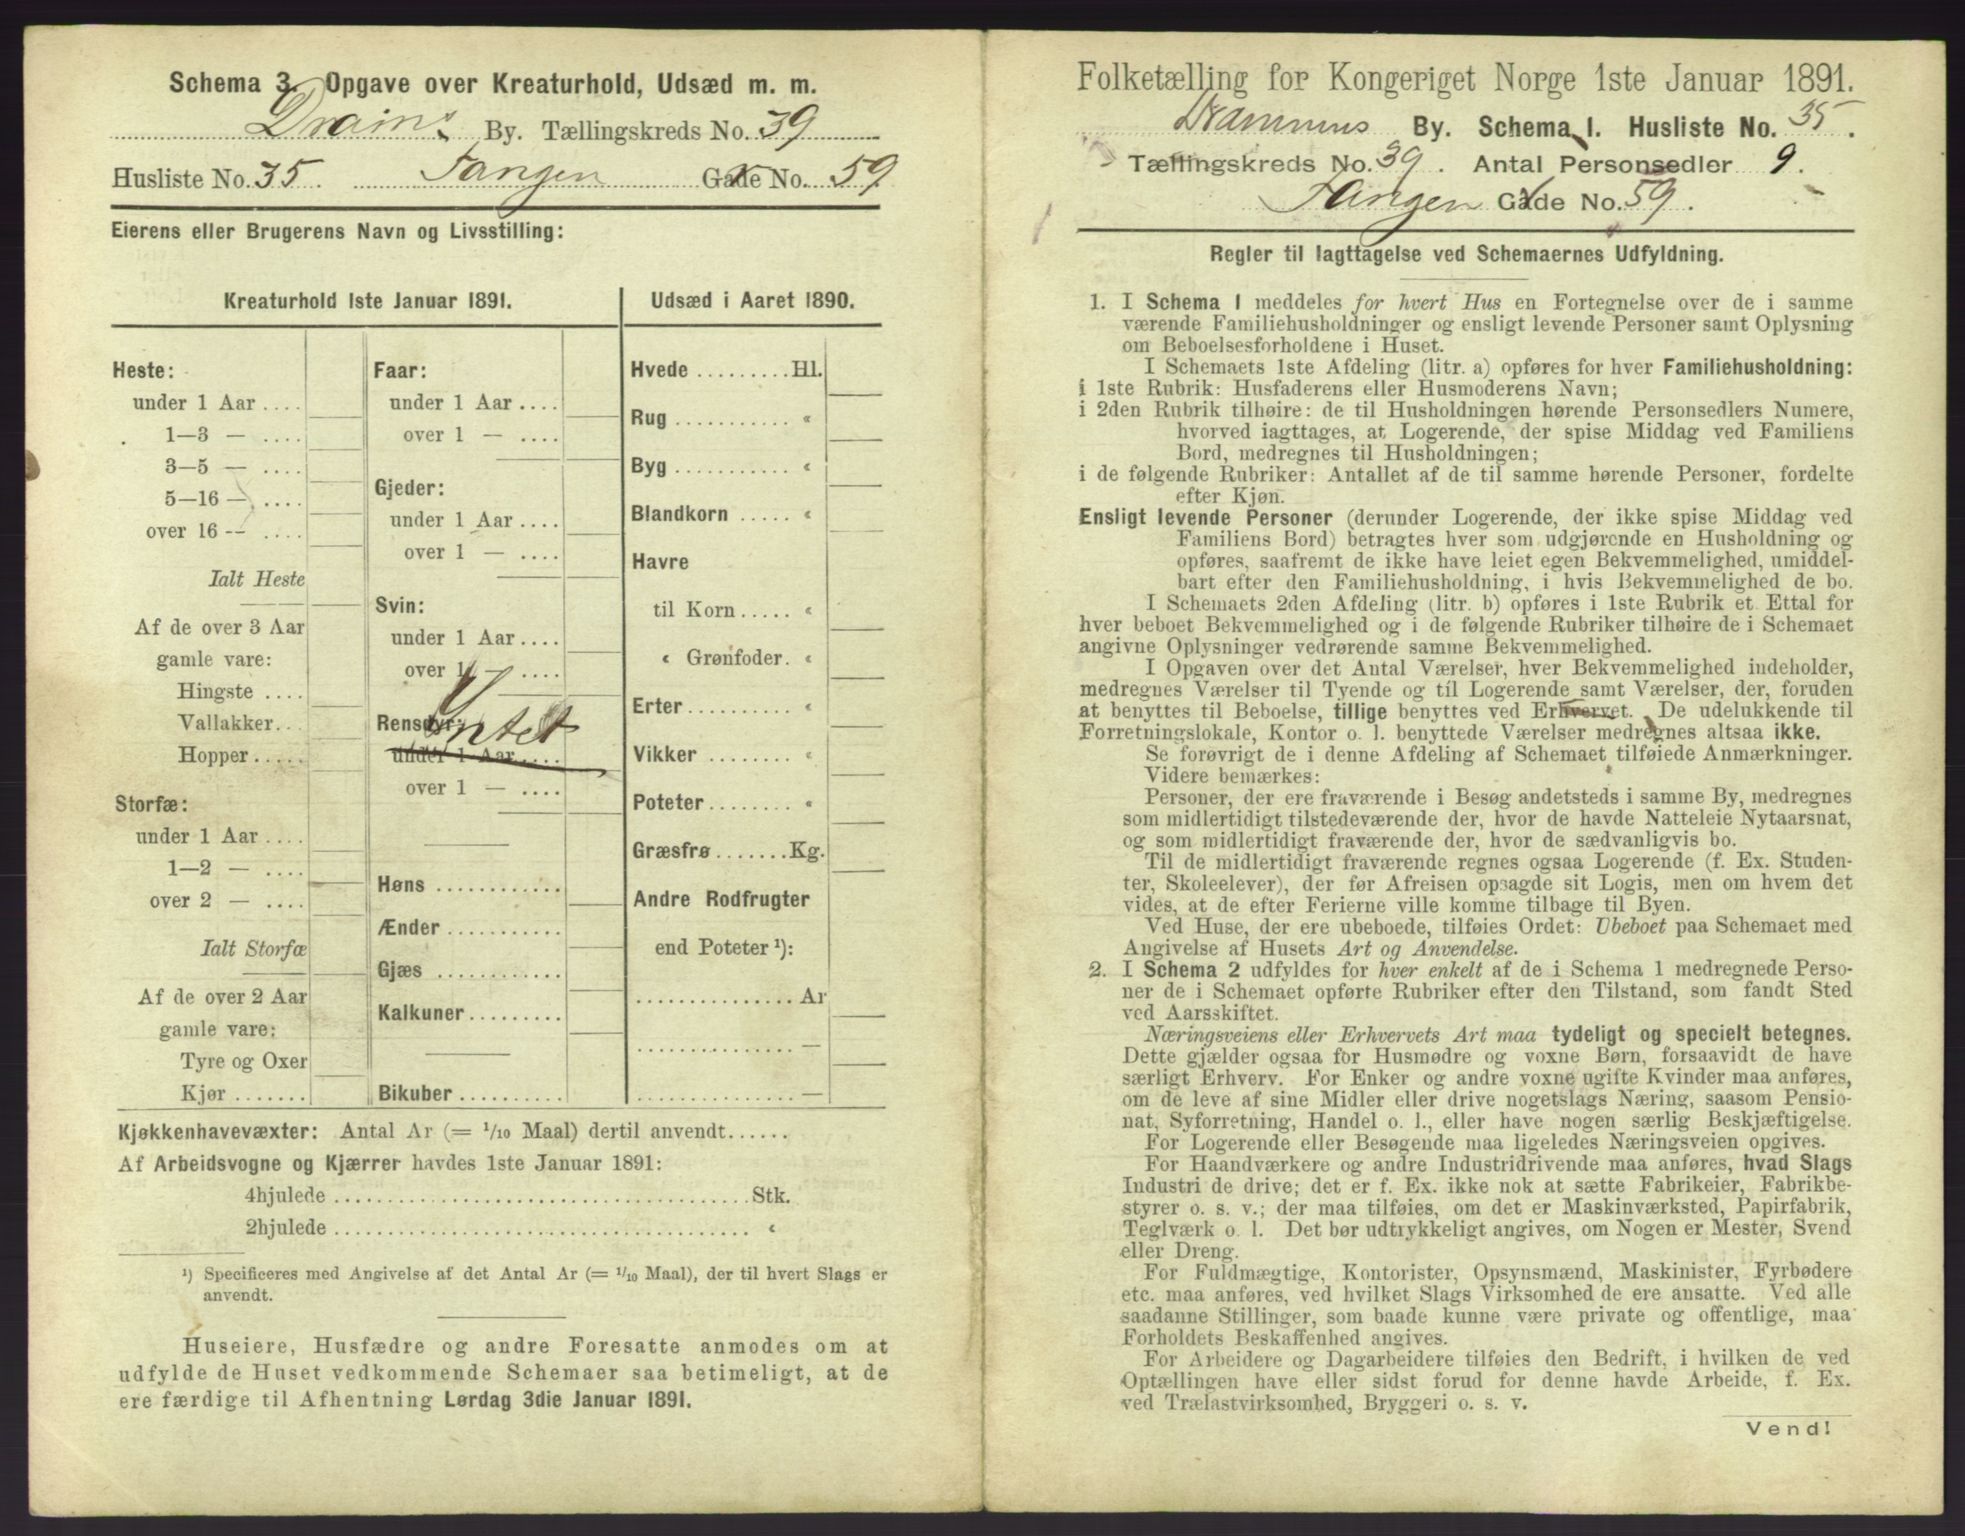 Schema 3. Opgave over Kreaturhold, Udsæd m. m.
Dramns By. Tællingskreds No. 39
Husliste No. 35. Tangen Gade No. 59
Eierens eller Brugerens Navn og Livsstilling:
Kreaturhold 1ste Januar 1891.
Heste:
under 1 Aar ....
1—3 — ....
3—5 — ....
5—16 — ....
over 16 — ....
Ialt Heste
Af de over 3 Aar
gamle vare:
Hingste ....
Vallakker...
Hopper.....
Storfæ:
under 1 Aar ....
1—2 — ....
over 2 — ....
Ialt Storfæ
Af de over 2 Aar
gamle vare:
Tyre og Oxer
Kjør .......
Faar:
under 1 Aar ....
over 1 — ....
Gjeder:
under 1 Aar ....
over 1 — ....
Svin:
under 1 Aar....
over 1 — ....
Rensdyr:
Intet
under 1 Aar ....
over 1 — ....
Høns ............
Ænder ...........
Gjæs ............
Kalkuner.........
Bikuber ..........
Udsæd i Aaret 1890.
Hvede .........Hl.
Rug ........... «
Byg ........... «
Blandkorn ..... «
Havre
til Korn ..... «
« Grønfoder. «
Erter.......... «
Vikker ........ «
Poteter........ «
Græsfrø.......Kg.
Andre Rodfrugter
end Poteter ¹):
............... Ar
............... —
............... —
Kjøkkenhavevæxter: Antal Ar (= 1/10 Maal) dertil anvendt......
Af Arbeidsvogne og Kjærrer havdes 1ste Januar 1891:
4hjulede ........................................Stk.
2hjulede ........................................ «
¹) Specificeres med Angivelse af det Antal Ar (= 1/10 Maal), der til hvert Slags er
anvendt.
Huseiere, Husfædre og andre Foresatte anmodes om at
udfylde de Huset vedkommende Schemaer saa betimeligt, at de
ere færdige til Afhentning Lørdag 3die Januar 1891.
Folketælling for Kongeriget Norge 1ste Januar 1891.
Drammens By. Schema 1. Husliste No. 35.
Tællingskreds No. 39. Antal Personsedler 9.
Tangen Gade No. 59.
Regler til Iagttagelse ved Schemaernes Udfyldning.
1. I Schema 1 meddeles for hvert Hus en Fortegnelse over de i samme
værende Familiehusholdninger og ensligt levende Personer samt Oplysning
om Beboelsesforholdene i Huset.
I Schemaets 1ste Afdeling (litr. a) opføres for hver Familiehusholdning:
i 1ste Rubrik: Husfaderens eller Husmoderens Navn;
i 2den Rubrik tilhøire: de til Husholdningen hørende Personsedlers Numere,
hvorved iagttages, at Logerende, der spise Middag ved Familiens
Bord, medregnes til Husholdningen;
i de følgende Rubriker: Antallet af de til samme hørende Personer, fordelte
efter Kjøn.
Ensligt levende Personer (derunder Logerende, der ikke spise Middag ved
Familiens Bord) betragtes hver som udgjørende en Husholdning og
opføres, saafremt de ikke have leiet egen Bekvemmelighed, umiddel-
bart efter den Familiehusholdning, i hvis Bekvemmelighed de bo.
I Schemaets 2den Afdeling (litr. b) opføres i 1ste Rubrik et Ettal for
hver beboet Bekvemmelighed og i de følgende Rubriker tilhøire de i Schemaet
angivne Oplysninger vedrørende samme Bekvemmelighed.
I Opgaven over det Antal Værelser, hver Bekvemmelighed indeholder,
medregnes Værelser til Tyende og til Logerende samt Værelser, der, foruden
at benyttes til Beboelse, tillige benyttes ved Erhvervet. De udelukkende til
Forretningslokale, Kontor o. l. benyttede Værelser medregnes altsaa ikke.
Se forøvrigt de i denne Afdeling af Schemaet tilføiede Anmærkninger.
Videre bemærkes:
Personer, der ere fraværende i Besøg andetsteds i samme By, medregnes
som midlertidigt tilstedeværende der, hvor de havde Natteleie Nytaarsnat,
og som midlertidigt fraværende der, hvor de sædvanligvis bo.
Til de midlertidigt fraværende regnes ogsaa Logerende (f. Ex. Studen-
ter, Skoleelever), der før Afreisen opsagde sit Logis, men om hvem det
vides, at de efter Ferierne ville komme tilbage til Byen.
Ved Huse, der ere ubeboede, tilføies Ordet: Ubeboet paa Schemaet med
Angivelse af Husets Art og Anvendelse.
2. I Schema 2 udfyldes for hver enkelt af de i Schema 1 medregnede Perso-
ner de i Schemaet opførte Rubriker efter den Tilstand, som fandt Sted
ved Aarsskiftet.
Næringsveiens eller Erhvervets Art maa tydeligt og specielt betegnes.
Dette gjælder ogsaa for Husmødre og voxne Børn, forsaavidt de have
særligt Erhverv. For Enker og andre voxne ugifte Kvinder maa anføres,
om de leve af sine Midler eller drive nogetslags Næring, saasom Pensio-
nat, Syforretning, Handel o. l., eller have nogen særlig Beskjæftigelse.
For Logerende eller Besøgende maa ligeledes Næringsveien opgives.
For Haandværkere og andre Industridrivende maa anføres, hvad Slags
Industri de drive; det er f. Ex. ikke nok at sætte Fabrikeier, Fabrikbe-
styrer o. s. v.; der maa tilføies, om det er Maskinværksted, Papirfabrik,
Teglværk o. l. Det bør udtrykkeligt angives, om Nogen er Mester, Svend
eller Dreng.
For Fuldmægtige, Kontorister, Opsynsmænd, Maskinister, Fyrbødere
etc. maa anføres, ved hvilket Slags Virksomhed de ere ansatte. Ved alle
saadanne Stillinger, som baade kunne være private og offentlige, maa
Forholdets Beskaffenhed angives.
For Arbeidere og Dagarbeidere tilføies den Bedrift, i hvilken de ved
Optællingen have eller sidst forud for denne havde Arbeide, f. Ex.
ved Trælastvirksomhed, Bryggeri o. s. v.
Vend!